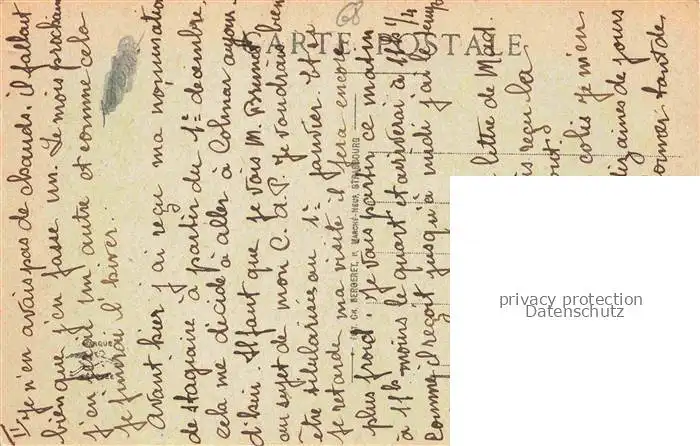 68
CARTE POSTALE
II) je n'en avais pas de chauds. il fallait
bien que j'en fasse un. Le mois prochain
j'en ferai un autre et comme cela
je finirai l'hiver.
Avant hier j'ai reçu ma nomination
de stagiaire à partir du 1er decembre,
cela me décide à aller à Colmar aujour-
d'hui. Il faut que je vois M. Brunot
au sujet de mon C. a. P. Je voudrais bien
être titularisée au 1er janvier. Et si
je retarde ma visite il fera encore
plus froid. Je vais partir ce matin
à 11h moins le quart et arriverai à 11h 1/4
Comme il reçoit jusqu'à midi j'ai le temps
lettre de Mad.
reçu la
colis je m'en
dizaines de jours
tant de
CH. BERGERET, MARCHÉ-NEUF, STRASBOURG
privacy protection
Datenschutz